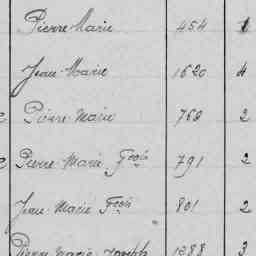 Pierre Marie 454 1
Jean Marie 1620 4
Pierre Marie 760 2
Pierre Marie Fçois 791 2
Jean Marie Fçois 801 2
Pierre Marie Joseph 1288 3